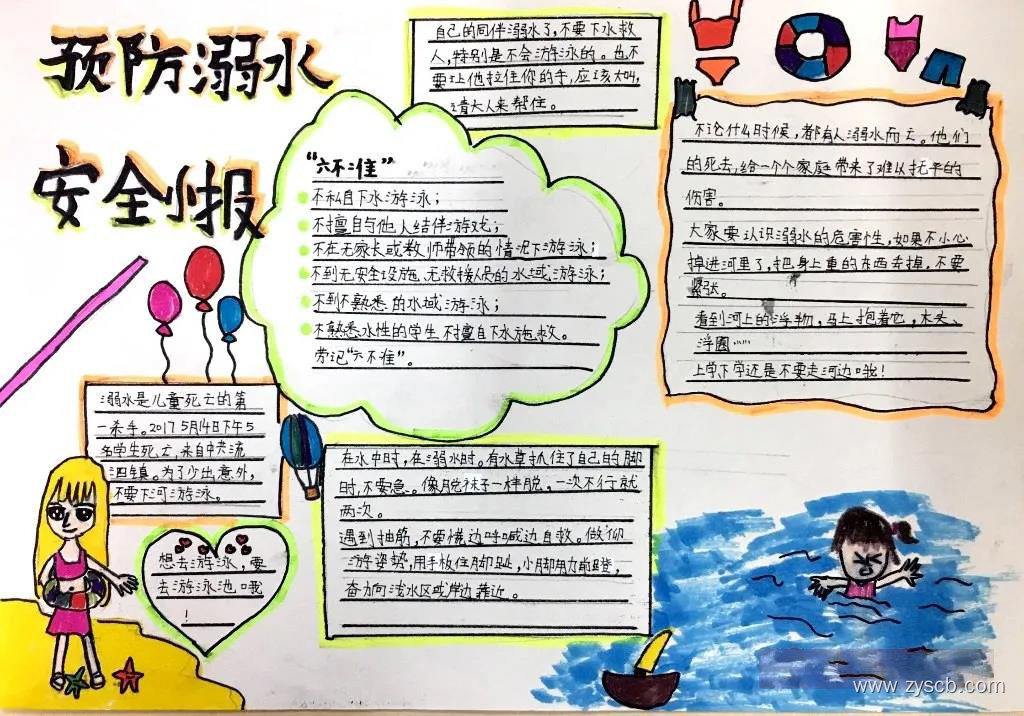 预防溺水
安全小报
自己的同伴溺水了,不要下水救
人,特别是不会游泳的。也不
要让他拉住你的手,应该大叫,
请大人来帮住。
"六不准"
不私自下水游泳;
不擅自与他人结伴游戏;
不在无家长或教师带领的情况下游泳;
不到无安全设施、无救援人员的水域游泳;
不到不熟悉的水域游泳;
不熟悉水性的学生不擅自下水施救。
劳记"六不准"。
不论什么时候,都有人溺水而亡。他们
的死去,给一个个家庭带来了难以抚平的
伤害。
大家要认识溺水的危害性,如果不小心
掉进河里了,把身上重的东西去掉,不要
紧张。
看到河上的浮物,马上抱着它,木头、
浮圈……
上学下学还是不要走河边哦!
溺水是儿童死亡的第
一杀手。2017 5月14日下午5
名学生死亡,来自中
四镇。为了少出意外,
不要下河游泳。
想去游泳,要
去游泳池哦
!
在水中时,在溺水时。有水草抓住了自己的脚
时,不要急。像脱袜子一样脱,一次不行就
两次。
遇到抽筋,不要慌边呼喊边自救。做仰
游姿势,用手板住脚趾,小脚用力前蹬,
奋力向浅水区或岸边靠近。
www.zyscb.com